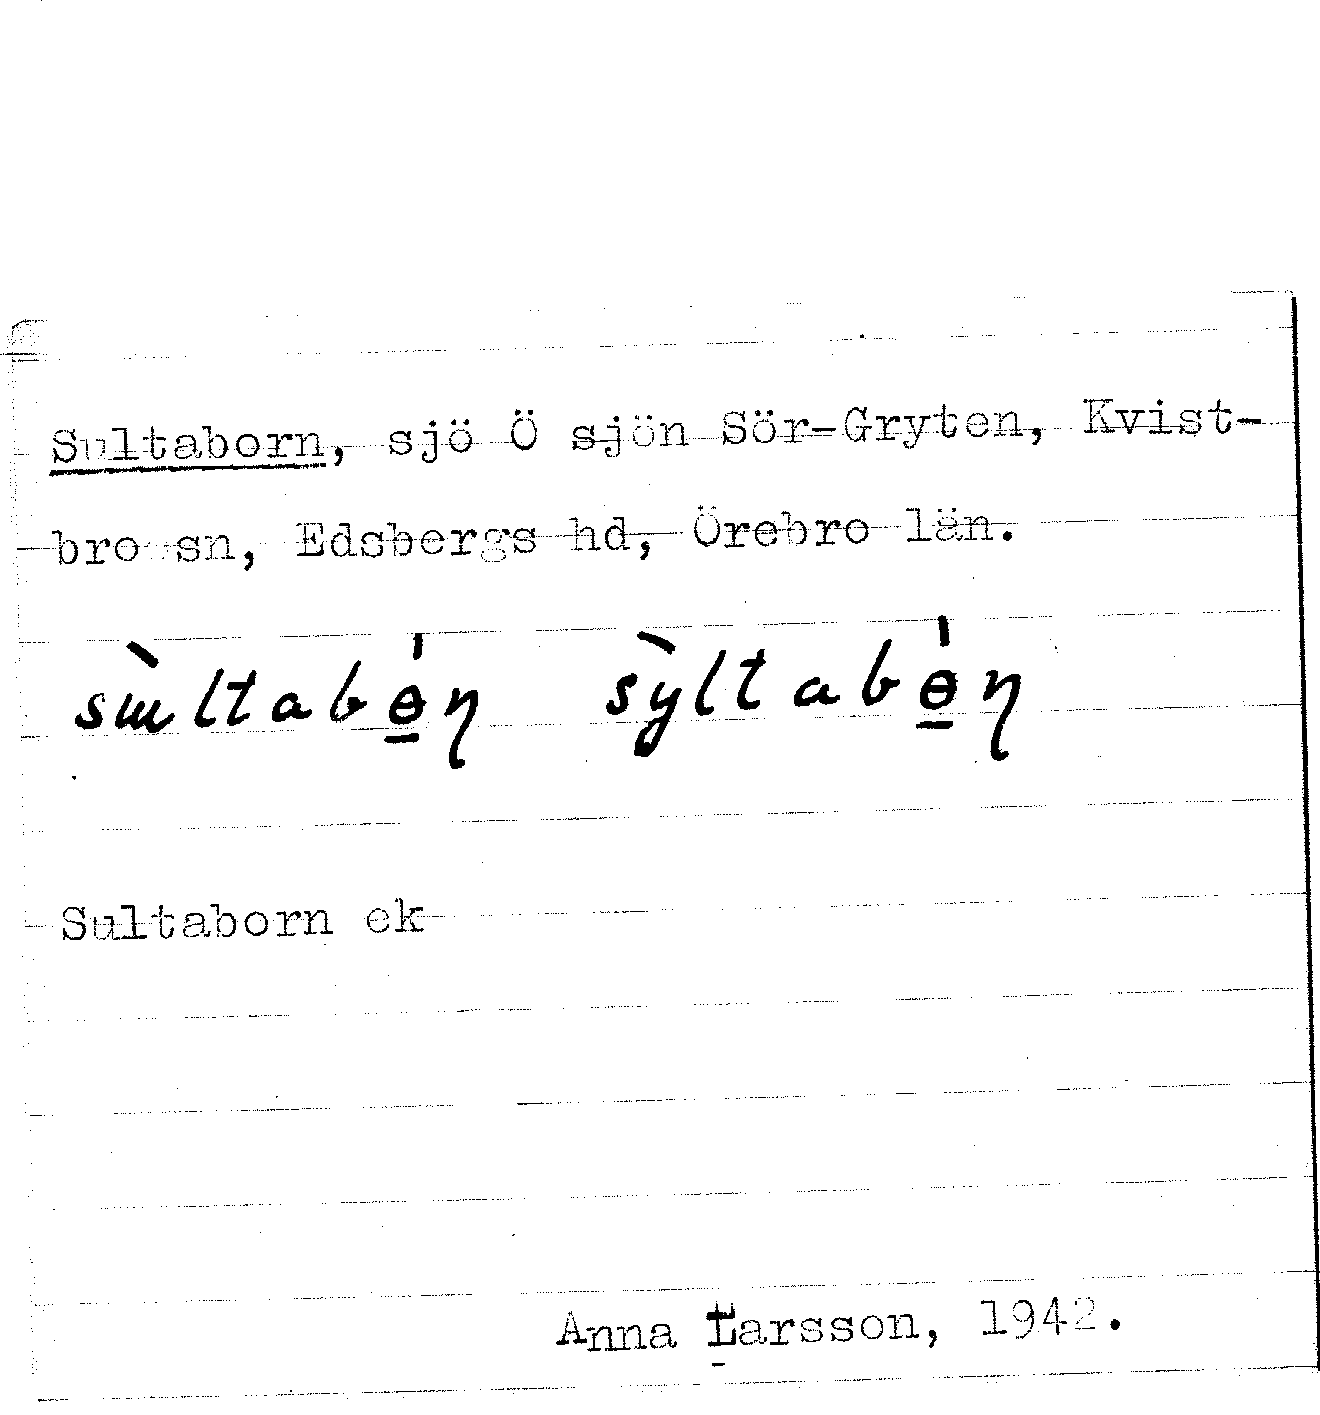 Sultaborn, sjö Ö sjön Sör-Gryten, Kvist-
bro sn, Edsbergs hd, Örebro län.
sɯ̀ltabɵ̲́ɳ sỳltabɵ̲́ɳ
Sultaborn ek
Anna Larsson, 1942.